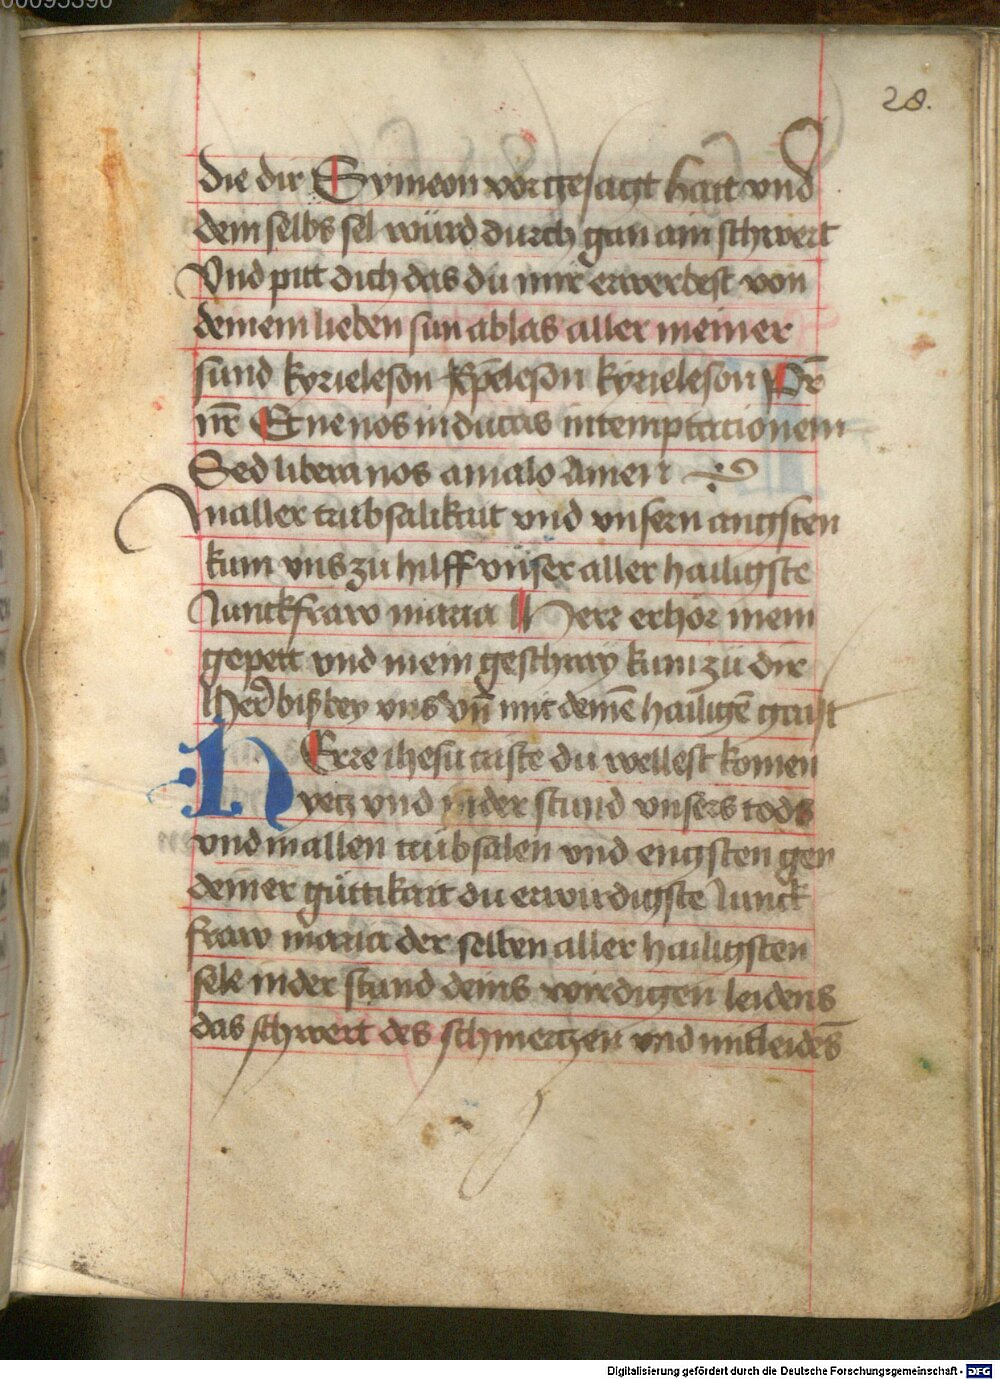 00095390
28.
die dir Symeon vorgesagt hatt vnd
dein selbs sel würd durch gan ain schwert
Vnd pitt dich das du mir erwerbest von
deinem lieben sun ablas aller meiner
sünd kyrieleson xp̄eleson kyrieleson Pr̄
nr̄ Et ne nos inducas in temptacionem
Sed libera nos a malo Amen
In aller trübsalikait vnd vnsern angsten
kum vns zu hilff vnser aller hailigste
Junckfraw maria Herr erhör mein
gepett vnd mein geschray kum zü dir
Her biß bey vns vn̄ mit deinē hailigē gaist
HErre ihesu criste du wellest komen
yetz vnd in der stund vnsers tods
vnd in allen trübsalen vnd engsten gen
deiner güttikait du erwirdigste Junck
fraw maria der selben aller hailigsten
sele in der stund deins wirdigen leidens
das schwert des schmertzen vnd mitleidēs
Digitalisierung gefördert durch die Deutsche Forschungsgemeinschaft - DFG